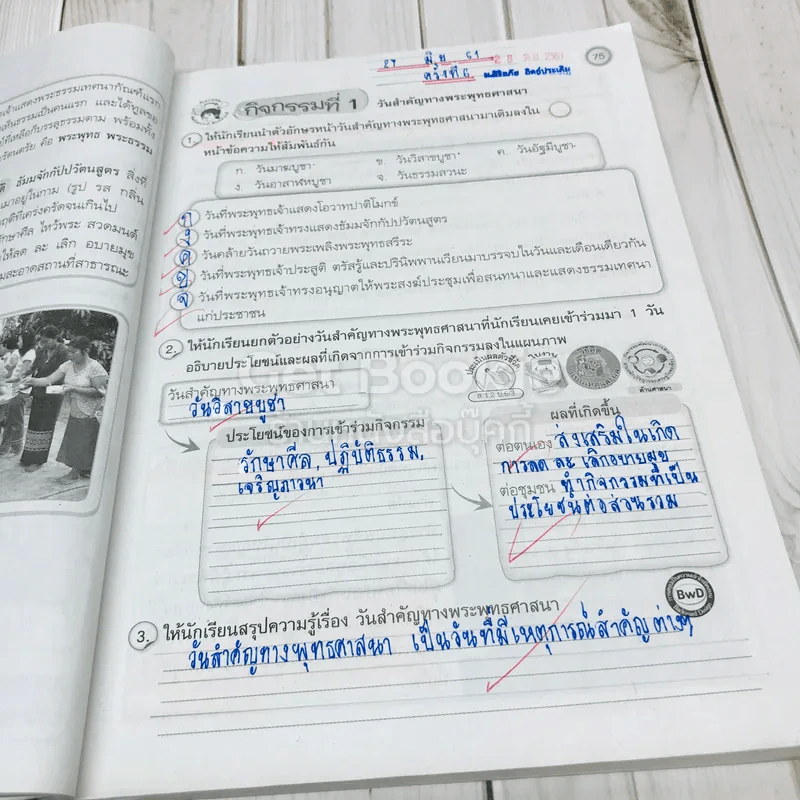 ้าแสดงพระธรรมเทศนากัณฑ์แรก
รัตนตรัย คือ พระพุทธ พระธรรม
ธัมมจักกัปปวัตนสูตร สิ่งที่
มาอยู่ในกาม (รูป รส กลิ่น
ฤติที่เคร่งครัดจนเกินไป
ักษาศีล ไหว้พระ สวดมนต์
ให้ลด ละ เลิก อบายมุข
มสะอาดสถานที่สาธารณะ
27 มิ.ย. 61
75
ครั้งที่ 6
กิจกรรมที่ 1 วันสำคัญทางพระพุทธศาสนา
1. ให้นักเรียนนำตัวอักษรหน้าวันสำคัญทางพระพุทธศาสนามาเติมลงใน
หน้าข้อความให้สัมพันธ์กัน
ก. วันมาฆบูชา ข. วันวิสาขบูชา ค. วันอัฐมีบูชา
ง. วันอาสาฬหบูชา จ. วันธรรมสวนะ
ก วันที่พระพุทธเจ้าแสดงโอวาทปาติโมกข์
ง วันที่พระพุทธเจ้าทรงแสดงธัมมจักกัปปวัตนสูตร
ค วันคล้ายวันถวายพระเพลิงพระพุทธสรีระ
ข วันที่พระพุทธเจ้าประสูติ ตรัสรู้และปรินิพพานเวียนมาบรรจบในวันและเดือนเดียวกัน
จ วันที่พระพุทธเจ้าทรงอนุญาตให้พระสงฆ์ประชุมเพื่อสนทนาและแสดงธรรมเทศนา
แก่ประชาชน
2. ให้นักเรียนยกตัวอย่างวันสำคัญทางพระพุทธศาสนาที่นักเรียนเคยเข้าร่วมมา 1 วัน
อธิบายประโยชน์และผลที่เกิดจากการเข้าร่วมกิจกรรมลงในแผนภาพ
วันสำคัญทางพระพุทธศาสนา
วันวิสาขบูชา
ประโยชน์ของการเข้าร่วมกิจกรรม
รักษาศีล, ปฏิบัติธรรม,
เจริญภาวนา
ผลที่เกิดขึ้น
ต่อตนเอง ส่งเสริมในเกิด
การลด ละ เลิกอบายมุข
ต่อชุมชน ทำกิจกรรมที่เป็น
ประโยชน์ต่อส่วนรวม
BwD
3. ให้นักเรียนสรุปความรู้เรื่อง วันสำคัญทางพระพุทธศาสนา
วันสำคัญทางพุทธศาสนา เป็นวันที่มีเหตุการณ์สำคัญต่างๆ